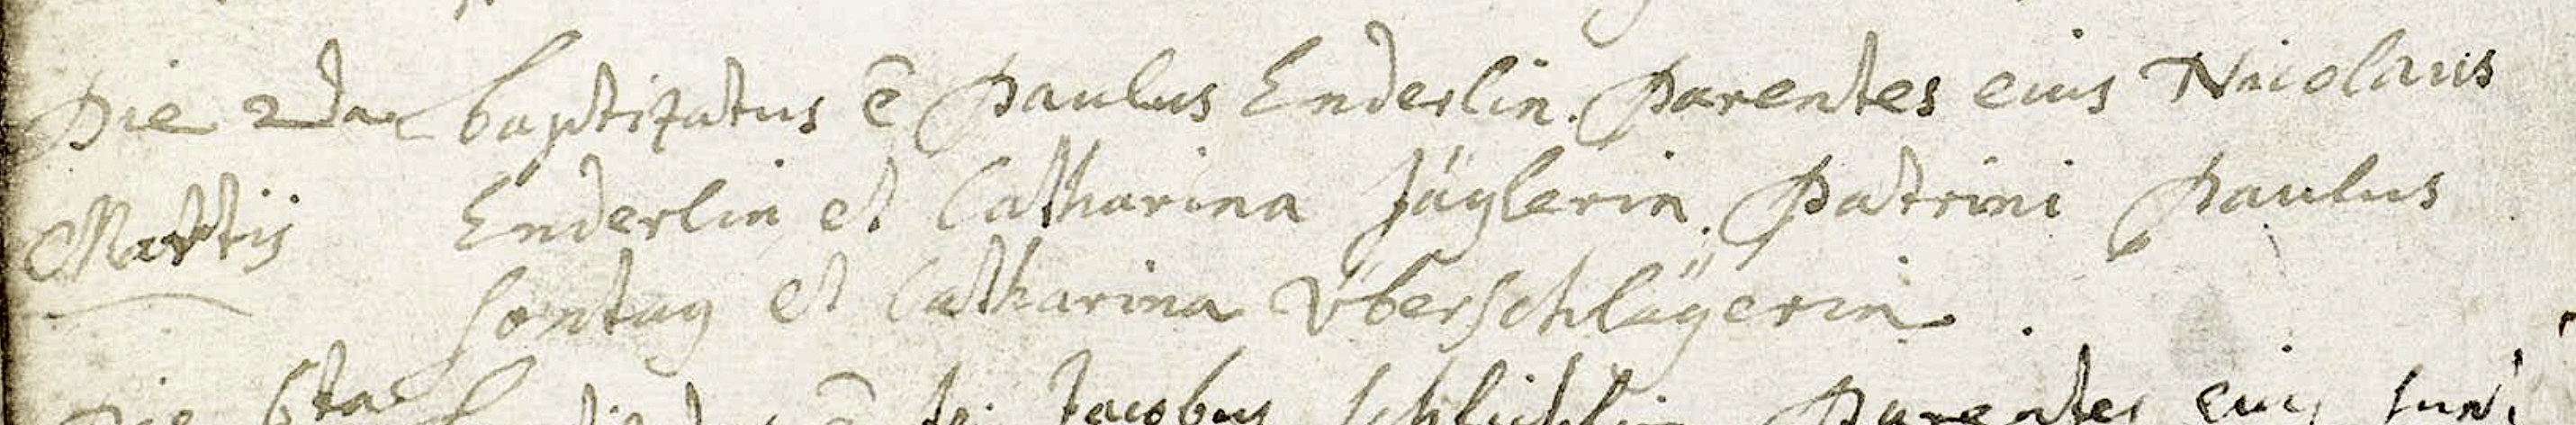 Die 2da baptizatus ē Paulus Enderlin. Parentes eius Nicolaus
Martij Enderlin et Catharina Jäglerin. Patrini Paulus
Sontag et Catharina Überschlägerin.
Die 6ta ē Jacobus Parentes eius sunt